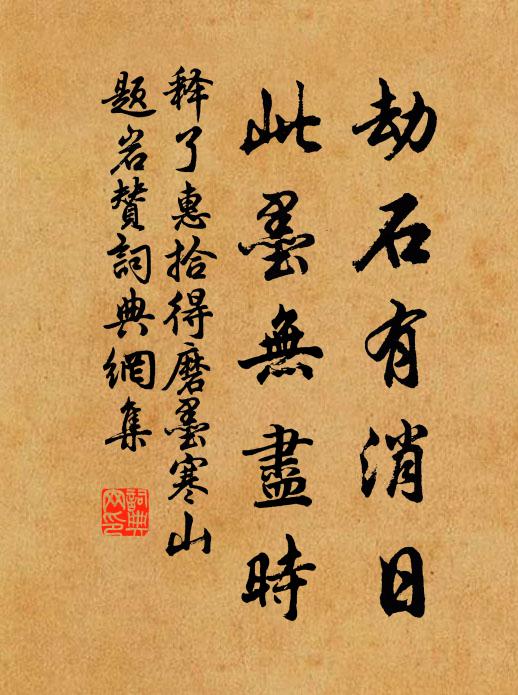 劫石有消日
此墨無盡時
释了惠拾得磨墨寒山
题岩赞詞典網集
詞典网印